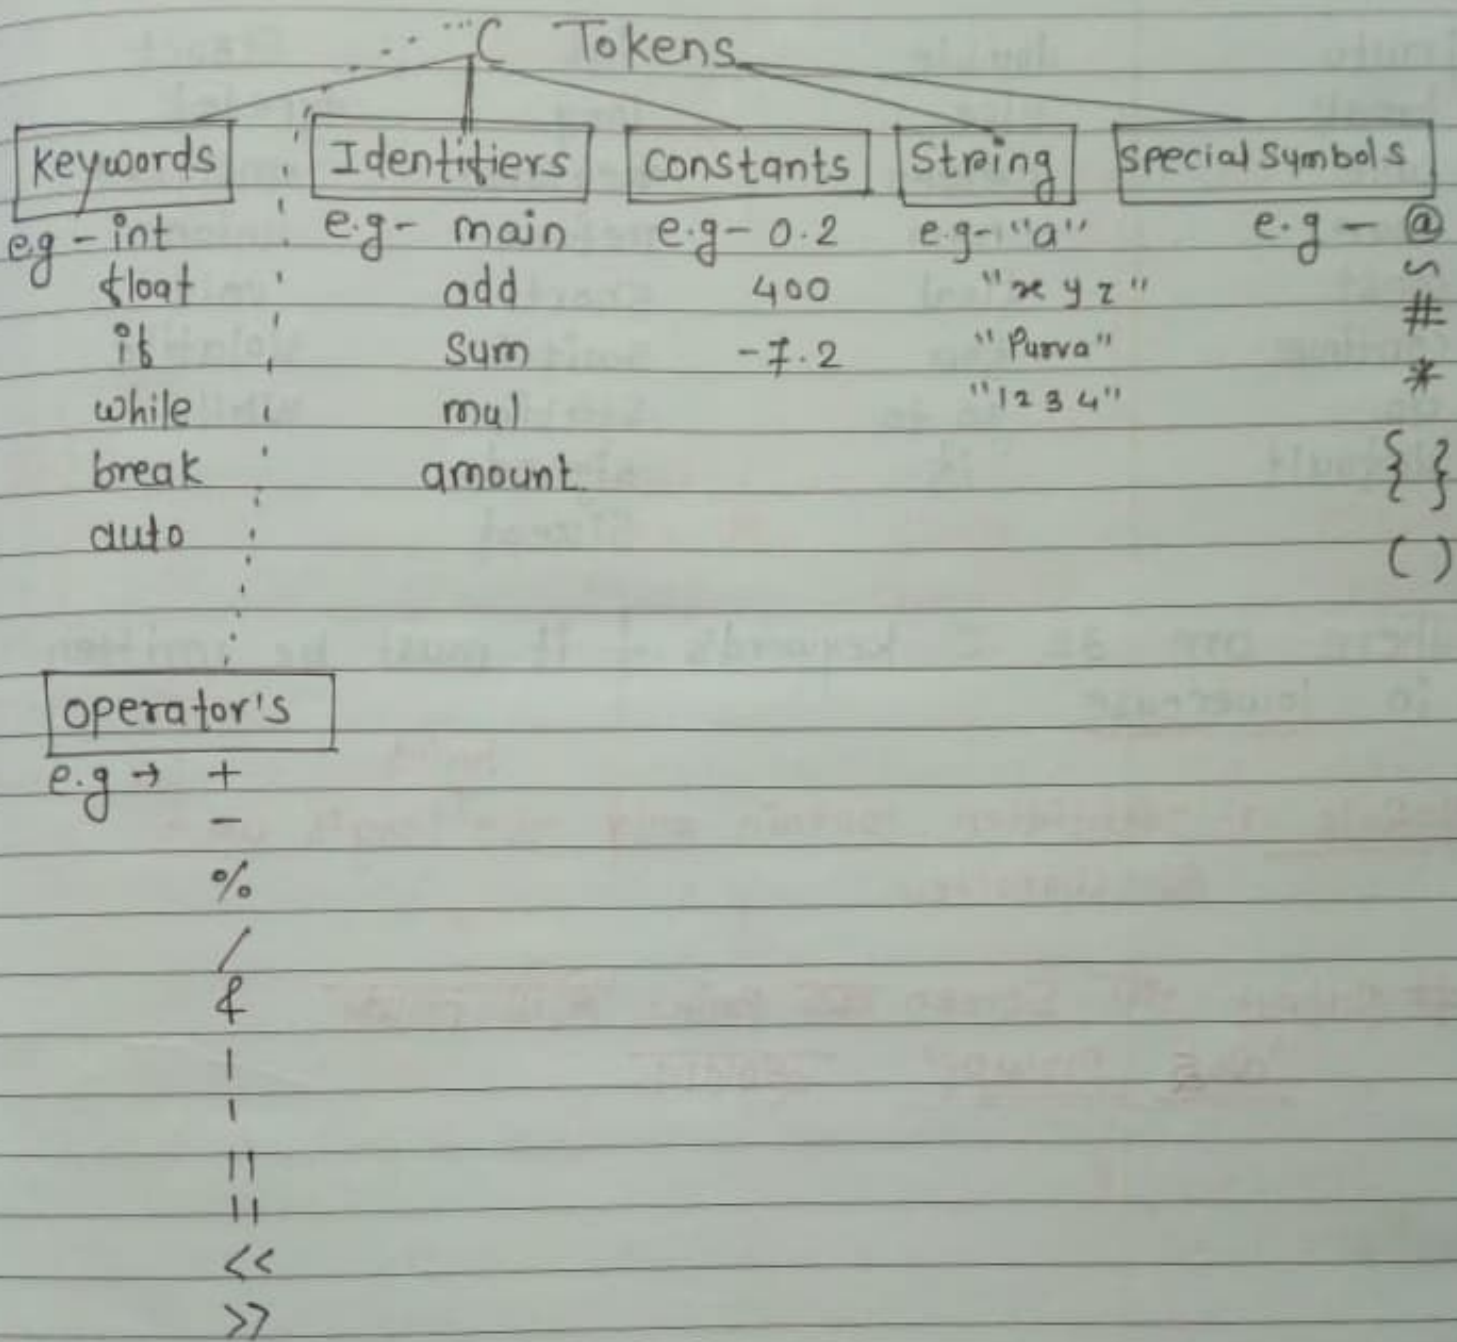 C Tokens
Keywords
e.g - int
float
if
while
break
auto
Identifiers
e.g - main
add
sum
mul
amount.
Constants
e.g - 0.2
400
-7.2
String
e.g - "a"
"x y z"
"Purva"
"1 2 3 4"
Special Symbols
e.g - @
~
#
*
{ }
( )
Operator's
e.g → +
-
%
/
&
|
|
||
||
<<
>>